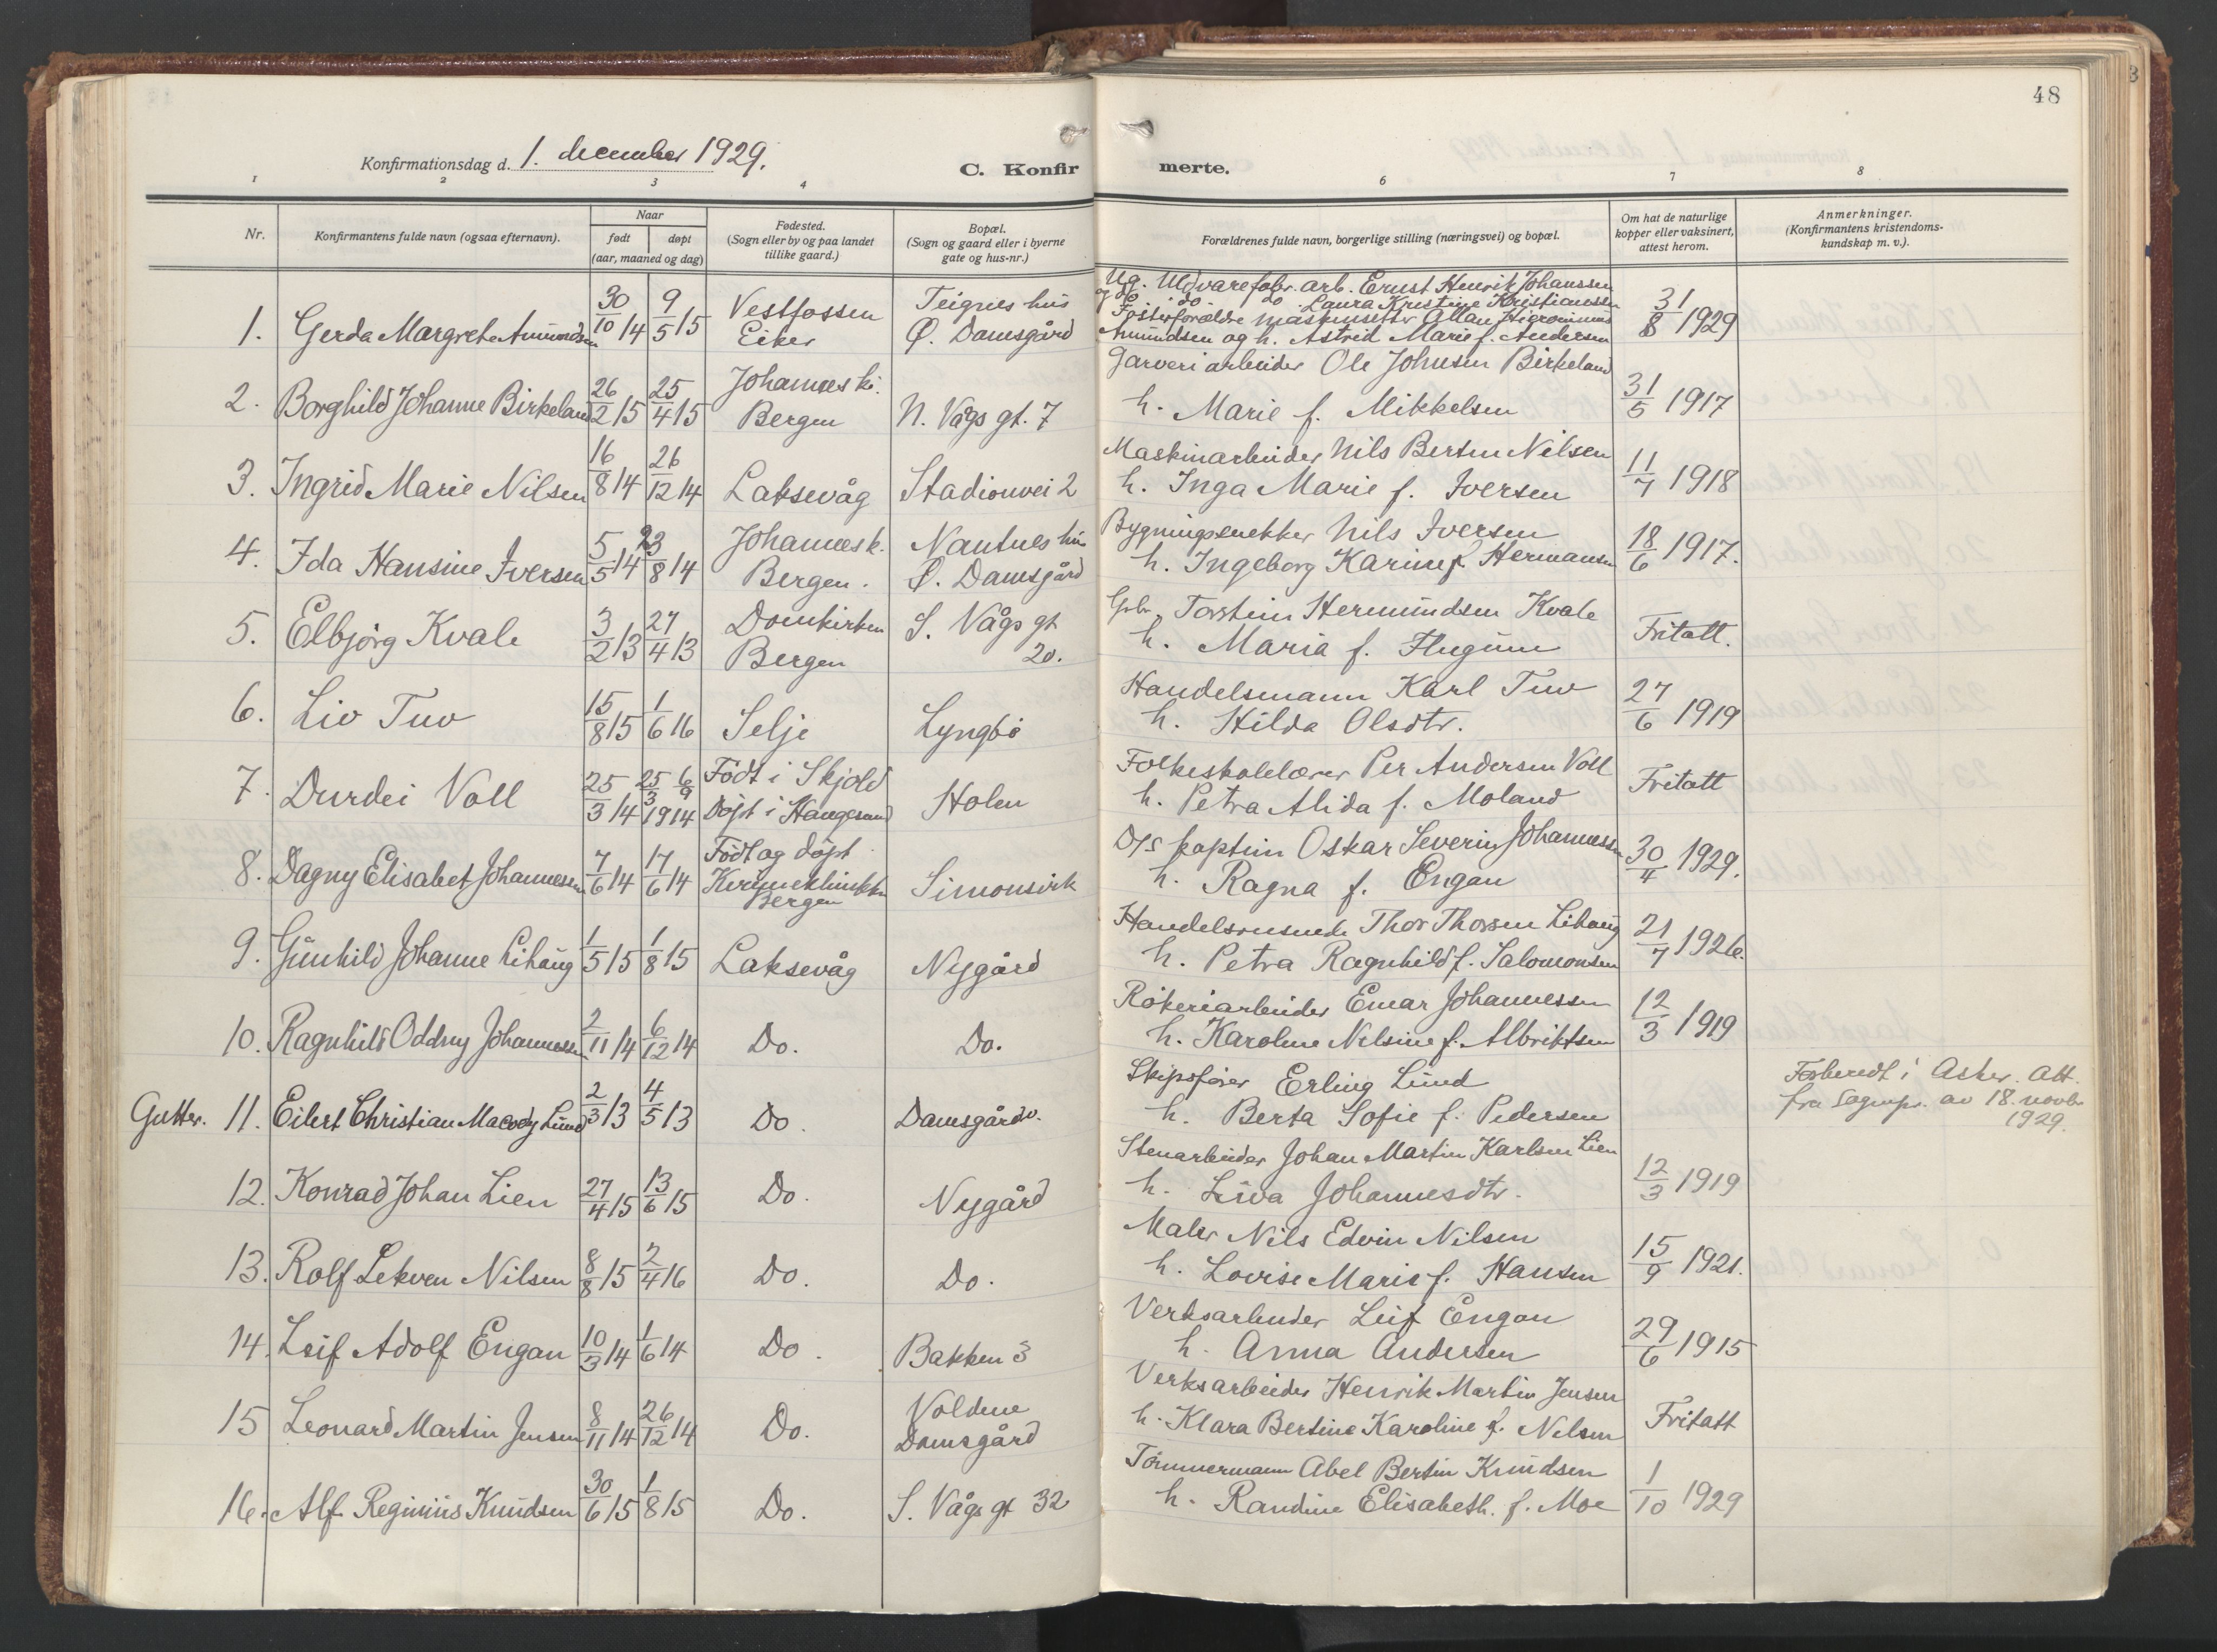 48
Konfirmationsdag d. 1. december 1929.
C. Konfirmerte.
1 2 3 4 6 7 8
Nr.
Konfirmantens fulde navn (ogsaa efternavn).
Naar
født
døpt
(aar, maaned og dag)
Fødested.
(Sogn eller by og paa landet
tillike gaard.)
Bopæl.
(Sogn og gaard eller i byerne
gate og hus-nr.)
Forældrenes fulde navn, borgerlige stilling (næringsvei) og bopæl.
Om hat de naturlige
kopper eller vaksinert,
attest herom.
Anmerkninger.
(Konfirmantens kristendoms-
kundskap m. v.).
1. Gerda Margrete Amundsen 30/10 14 9/5 15 Vestfossen
Eiker
Teignes hus
Ø. Damsgård
Ug. Uldvarefabr. arb. Ernst Henrik Johanssen
og do do Laura Kristine Kristianssen
Fosterforældre maskinsetter Allan Hieronimus
Amundsen og h. Astrid Marie f. Andersen
31/8 1929
2. Borghild Johanne Birkeland 26/2 15 25/4 15 Johannes ki.
Bergen
N. Vågs gt. 7
Garveriarbeider Ole Johnsen Birkeland
h. Marie f. Mikkelsen
31/5 1917
3. Ingrid Marie Nilsen 16/8 14 26/12 14 Laksevåg Stadionvei 2
Maskinarbeider Nils Bertin Nilsen
h. Inga Marie f. Iversen
11/7 1918
4. Ida Hansine Iversen 5/5 14 23/8 14 Johannesk.
Bergen.
Nautnes hus
Ø. Damsgård
Bygningssnekker Nils Iversen
h. Ingeborg Karine f. Hermansen
18/6 1917.
5. Elbjörg Kvale 3/2 13 27/4 13 Domkirken
Bergen
S. Vågs gt
20.
Gbr. Torstein Hermundsen Kvale
h. Maria f. Flugum
Fritatt.
6. Liv Tuv 15/8 15 1/6 16 Selje Lyngbö
Handelsmann Karl Tuv
h. Hilda Olsdtr.
27/6 1919
7. Durdei Voll 25/3 14 25/3 6/9 1914 Födt i Skjold
Döpt i Haugesund
Holen
Folkeskolelærer Per Andersen Voll
h. Petra Alida f. Moland
Fritatt
8. Dagny Elisabet Johannessen 7/6 14 17/6 14 Födt og döpt
Kvinneklinikken
Bergen
Simonsvik
D/S kaptein Oskar Severin Johannessen
h. Ragna f. Engan
30/4 1929.
9. Gunhild Johanne Lihaug 1/5 15 1/8 15 Laksevåg Nygård
Handelsreisende Thor Thorsen Lihaug
h. Petra Ragnhild f. Salomonsen
21/7 1926.
10. Ragnhild Oddny Johannessen 2/11 14 6/12 14 Do. Do.
Rökeriarbeider Einar Johannessen
h. Karoline Nilsine f. Albriktsen
12/3 1919
Gutter. 11. Eilert Christian Macody Lund 2/3 13 4/5 13 Do. Damsgårdv.
Skipsförer Erling Lund
h. Berta Sofie f. Pedersen
Forberedt i Asker. Att.
fra Sognepr. av 18. novbr
1929.
12. Konrad Johan Lien 27/4 15 13/6 15 Do. Nygård
Stenarbeider Johan Martin Karlsen Lien
h. Liva Johannesdtr.
12/3 1919
13. Rolf Lekven Nilsen 8/8 15 2/4 16 Do. Do.
Maler Nils Edvin Nilsen
h. Lovise Marie f. Hansen
15/9 1921.
14. Leif Adolf Engan 10/3 14 1/6 14 Do. Bakken 3
Verksarbeider Leif Engan
h. Anna Andersen
29/6 1915
15 Leonard Martin Jensen 8/11 14 26/12 14 Do. Voldene
Damsgård
Verksarbeider Henrik Martin Jensen
h. Klara Bertine Karoline f. Nilsen
Fritatt
16. Alf Reginius Knudsen 30/6 15 1/8 15 Do. S. Vågs gt 32
Tömmermann Abel Bertin Knudsen
h. Randine Elisabeth. f. Moe
1/10 1929